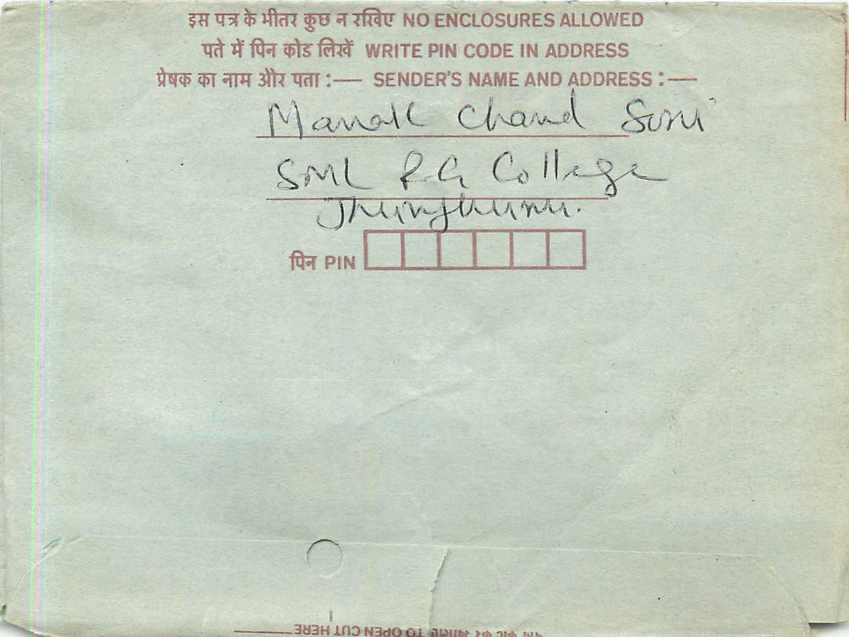 इस पत्र के भीतर कुछ न रखिए NO ENCLOSURES ALLOWED
पते में पिन कोड लिखें WRITE PIN CODE IN ADDRESS
प्रेषक का नाम और पता :— SENDER'S NAME AND ADDRESS :—
Manak Chand Soni
SML P.G College
Jhunjhunu.
पिन PIN
TO OPEN CUT HERE